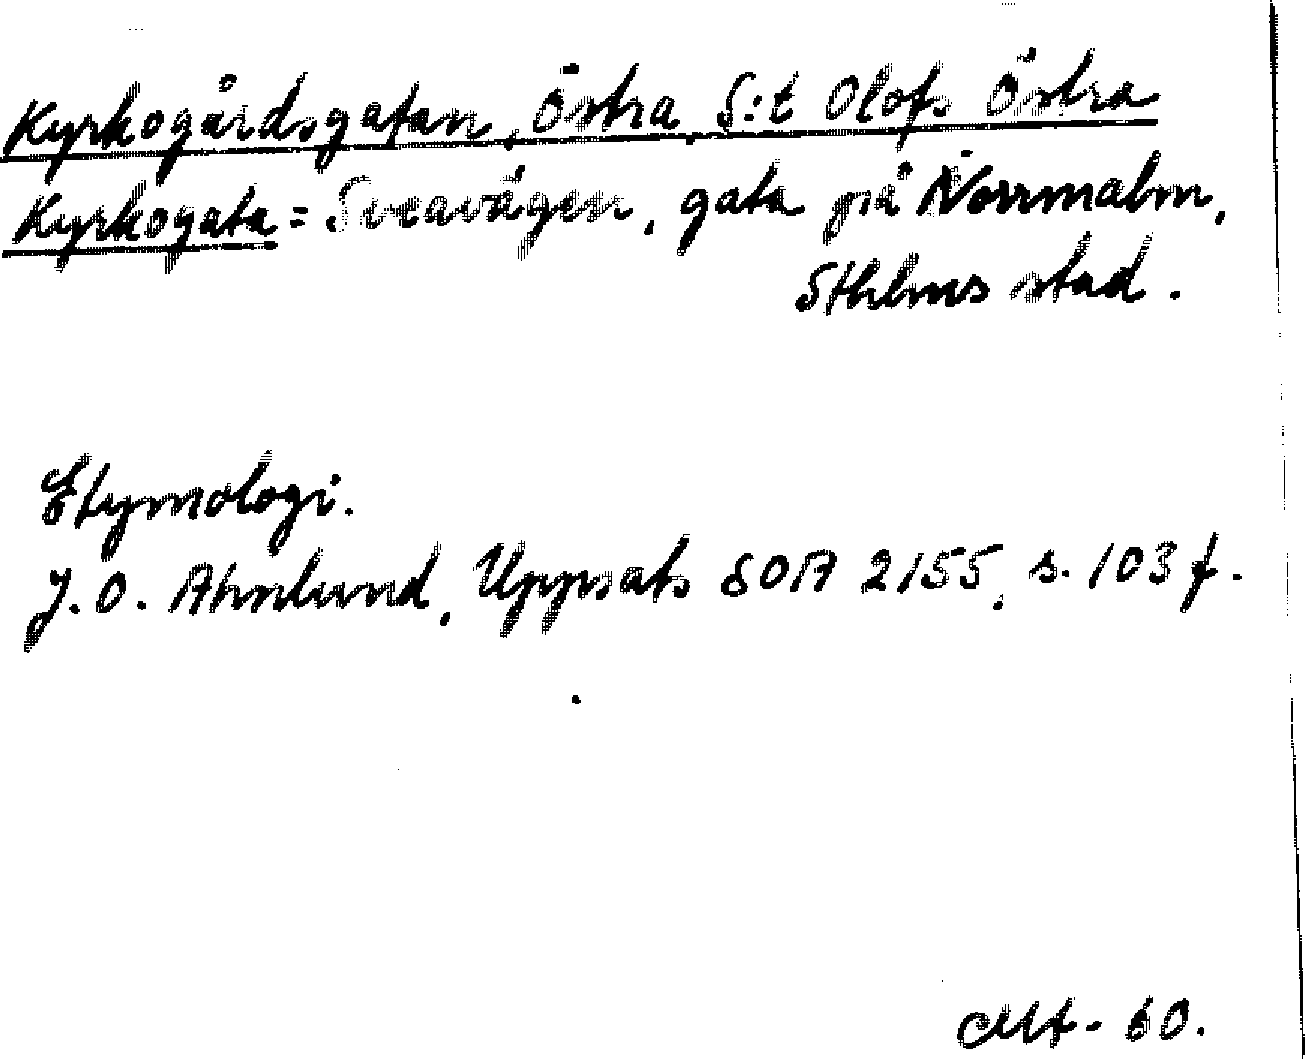 Kyrkogårdsgatan, Östra, S:t Olofs Östra
Kyrkogata = Sveavägen, gata på Norrmalm,
Sthlms stad.
Etymologi.
J. O. Ahnlund, Uppsats SOA 2155, s. 103 f.
60.